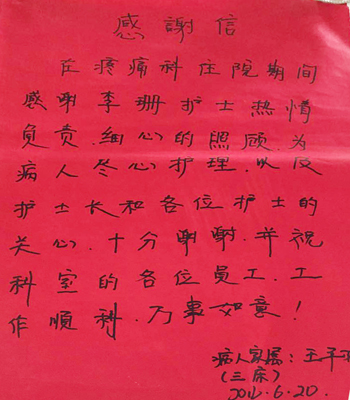 感謝信
在疼痛科住院期间
感谢李珊护士热情
负责.细心的照顾.为
病人尽心护理.以及
护士长和各位护士的
关心.十分谢谢.并祝
科室的各位员工.工
作顺利.万事如意！
病人家属：王平
(三床)
2016.6.20.